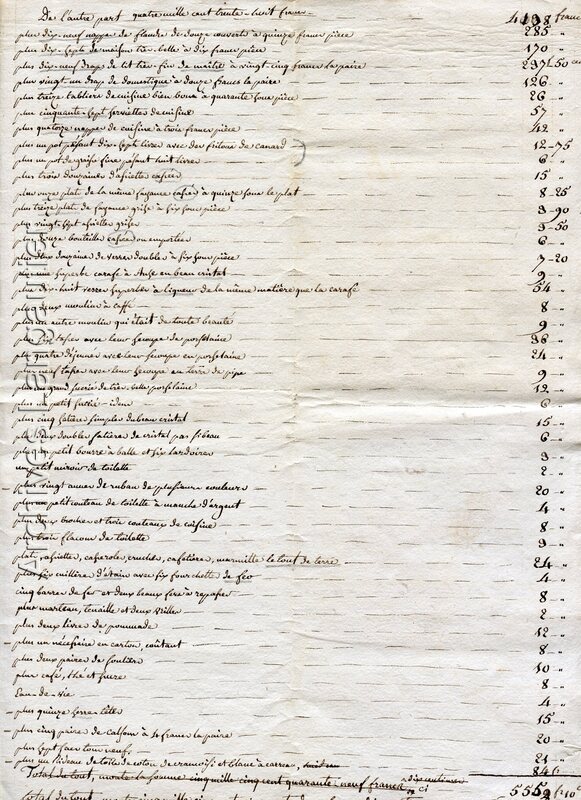 De l'autre part quatre mille cent trente-huit francs — 4138 francs
plus dix-neuf nappe de flandre de douze couverts à quinze francs pièce — 285 "
plus dix-sept de maison très-belle à dix francs pièce — 170 "
plus dix-neuf draps de lit très-fin de maître à vingt-cinq francs la paire — 237 50 ce
plus vingt-un drap de domestique à douze francs la paire — 126 "
plus treize tabliers de cuisine bien bons à quarante sous pièce — 26 "
plus cinquante-sept serviettes de cuisine — 57 "
plus quatorze nappes de cuisine à trois francs pièce — 42 "
plus un pot pesant dix-sept livres avec des de canard — 12-75
plus un pot de graisse fine pesant huit livres — 6 "
plus trois douzaines d'assiettes cassées — 15 "
plus onze plat de la même fayance cassés à quinze sous le plat — 8-25
plus treize plat de fayance grise à six sous pièce — 3-90
plus vingt-sept assiettes grises — 3-50
plus douze bouteilles cassées ou emportées — 6 "
plus deux douzaine de verres doubles à six sous pièce — 7-20
plus une superbe carafe à Anse en beau cristal — 9 "
plus dix-huit verres superbes à liqueur de la même matière que la carafe — 54 "
plus deux moulin à caffé — 8 "
plus un autre moulin qui était de toute beauté — 9 "
plus six tasses avec leur soucoupe de porcelaine — 36 "
plus quatre déjeunés avec leur soucoupe en porcelaine — 24 "
plus neuf tasses avec leur soucoupe en terre de pipe — 9 "
plus un grand sucrié de très-belle porcelaine — 12 "
plus un petit sucrié - idem — 6 "
plus cinq salières simples du beau cristal — 15 "
plus deux doubles salières de cristal — 6 "
plus un petit bourre à balle et six lardoires — 3 "
un petit miroir de toilette — 2 "
— plus vingt aunes de ruban de plusieurs couleurs — 20 "
plus un petit couteau de toilette à manche d'argent — 4 "
plus deux broches et trois couteaux de cuisine — 8 "
plus trois flacons de toilette — 9 "
plats, assiettes, casserole, cruches, cafetières, marmitte le tout de terre — 24 "
plus six cuillères d'étain avec six fourchettes de fer — 4 "
cinq barres de fer et deux beaux fers à repasser — 8 "
plus marteau, tenaille et deux vrilles — 2 "
plus deux livres de pommade — 12 "
— plus un nécessaire en carton, coûtant — 8 "
plus deux paires de souliers — 10 "
plus café, thé et sucre — 8 "
Eau-de-vie — 4 "
— plus quinze serre-têtes — 15 "
— plus cinq paire de calsons à 4 francs la paire — 20 "
plus sept sacs tous neufs — 21 "
— plus un rideau de toile de coton de cramoisi et blanc à carreau — 8 "
Total du tout, monte la somme cinq mille cinq cent quarante neuf francs dix centimes
ci 5559 10
total du tout,
Archives Largarde